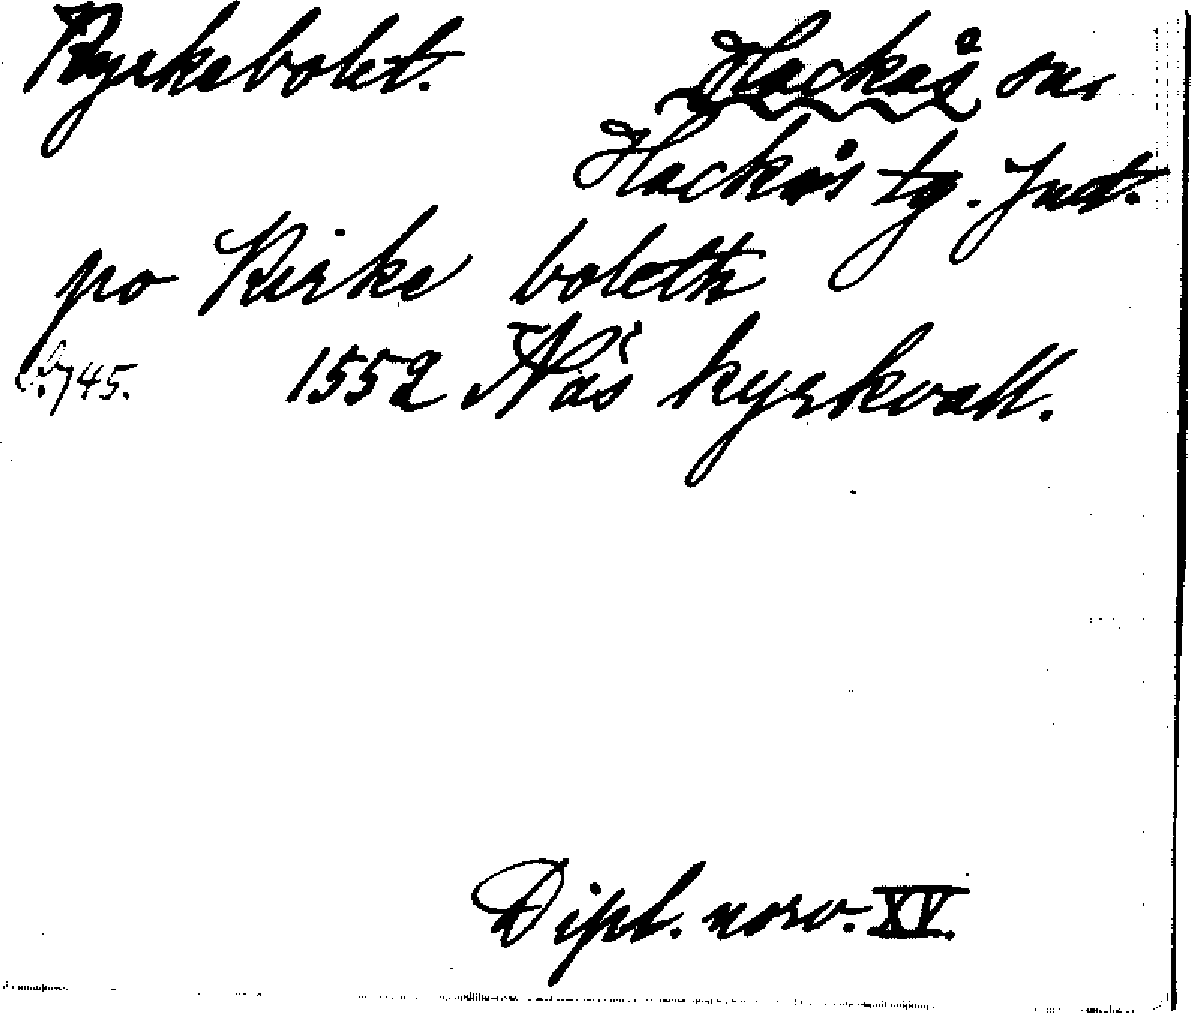 Kyrkebolet. Hackås sn.
Hackås tg. Jmt.
po Kirke boleth
s. 745. 1552 Näs kyrkvall.
Dipl. norv. XV.